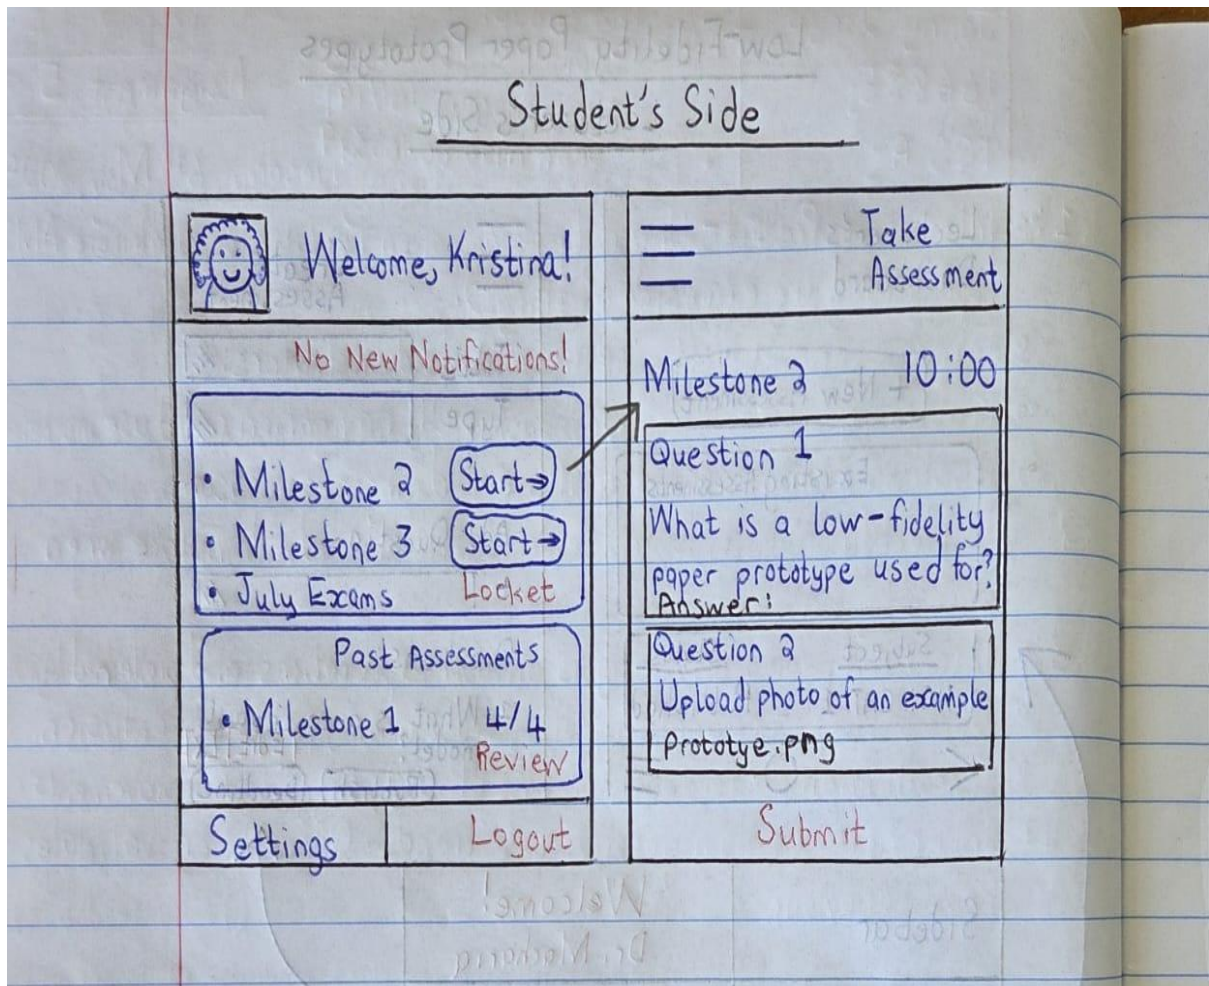 Student's Side
Welcome, Kristina!
No New Notifications!
• Milestone 2 Start→
• Milestone 3 Start→
• July Exams Locket
Past Assessments
• Milestone 1 4/4
Review
Settings Logout
Take
Assessment
Milestone 2 10:00
Question 1
What is a low-fidelity
paper prototype used for?
Answer:
Question 2
Upload photo of an example
Prototye.png
Submit